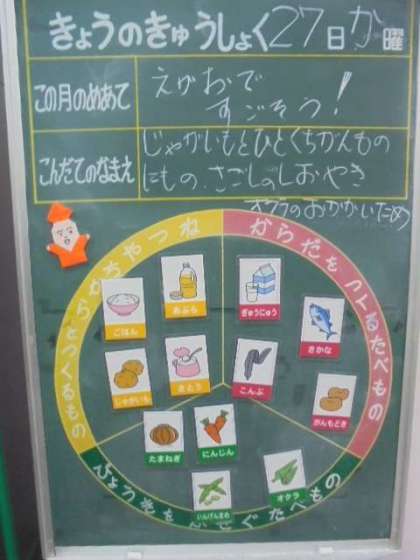 きょうのきゅうしょく27日か曜
この月のめあて
えがおで
すごそう!
こんだてのなまえ
じゃがいもとひとくちがんもの
にもの、さごしのしおやき
オクラのおかかいため
ちからやねつをつくるもの
からだをつくるたべもの
びょうきをふせぐたべもの
ごはん
あぶら
ぎゅうにゅう
さかな
じゃがいも
さとう
こんぶ
がんもどき
たまねぎ
にんじん
いんげんまめ
オクラ